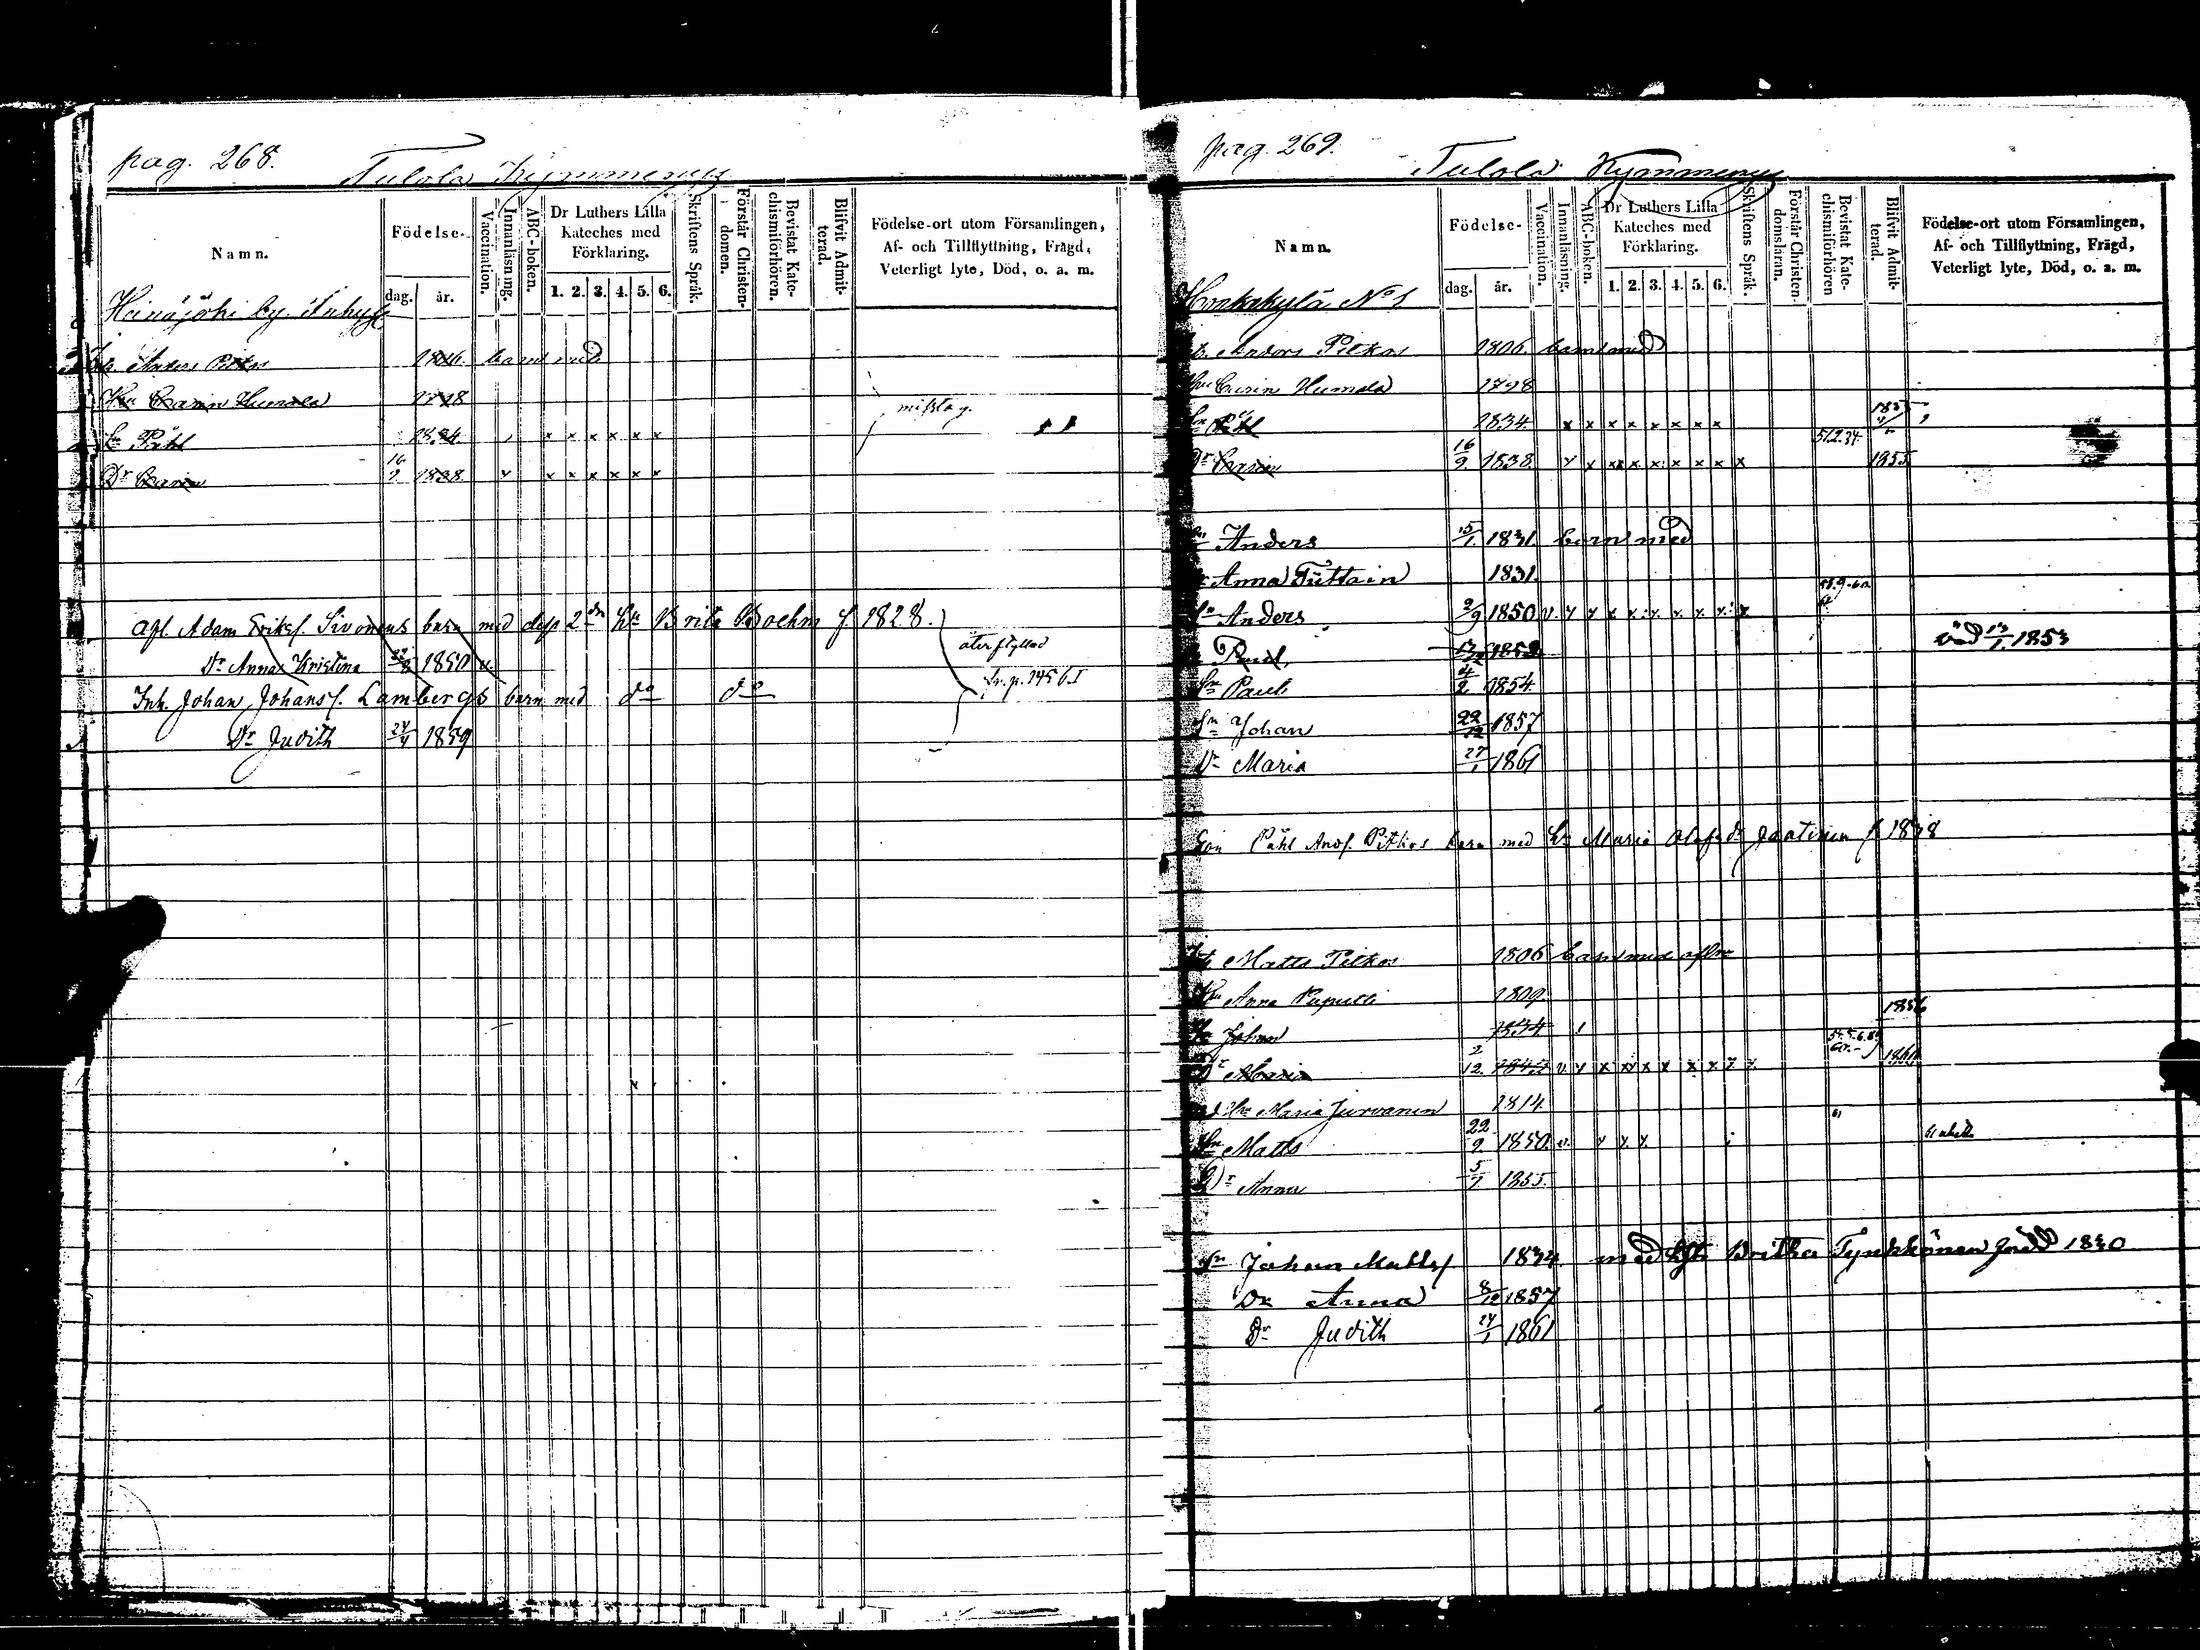 pag. 268.
Tulola Kymmenys
Namn.
Födelse-
dag.
år.
Vaccination.
Innanläsning.
ABC-boken.
Dr Luthers Lilla Kateches med Förklaring.
1. 2. 3. 4. 5. 6.
Skriftens Språk.
Förstår Christendomen.
Bevistat Katechismiförhören.
Blifvit Admitterad.
Födelse-ort utom Församlingen, Af- och Tillflyttning, Frägd, Veterligt lyte, Död, o. a. m.
Heinäjoki by
Anders Pitkos 1806. barns med
Hu Carin Humala 1798
misstag.
Sn Påhl 1834 x x x x x x
Dr Carin 16/9 1838 x x x x x x
Afl. Adam Eriksf. Sivonens barn med desf 2dra Hu Brita Boehm f 1828.
återflyttad
Dr Anna Kristina 1850 v.
Inh. Johan Johansf. Lambergs barn med do do
Dr Judith 24/4 1859
pag. 269.
Tulola Kymmenys
Namn.
Födelse-
dag.
år.
Vaccination.
Innanläsning.
ABC-boken.
Dr Luthers Lilla Kateches med Förklaring.
1. 2. 3. 4. 5. 6.
Skriftens Språk.
Förstår Christendomsläran.
Bevistat Katechismiförhören
Blifvit Admitterad.
Födelse-ort utom Församlingen, Af- och Tillflyttning, Frägd, Veterligt lyte, Död, o. a. m.
No 1
Anders Pitkos 1806 barns med
Hu Carin Humala 1798
Sn Påhl 1834 x x x x x x x x 1855
Dr Carin 16/9 1838 x x x x x x x x 1855
Anders 15/1 1831 barns med
Anna Tüttain 1831.
Sn Anders 2/9 1850 v.
Paul 1852 död 13/1 1853
Sn Paul 4/2 1854
Sn Johan 22/12 1857
Dr Maria 27/1 1861
Son Påhl Andf. Pitkos barn med Hu Maria Olofsdr Jäätinen f 1838
Matts Pitkos 1806 barns med aflne
Hu Anna Paputti 1809
Sn Johan 1834 1856
Dr Maria 2/12 1860
Hu Maria Jurvanen 1814
Sn Matts 22/9 1850. v.
Dr Anna 5/7 1855.
Sn Johan Mattsf 1834 med Hst Britha Tynkkönen född 1830
Dr Anna 8/12 1857
Dr Judith 24/1 1861